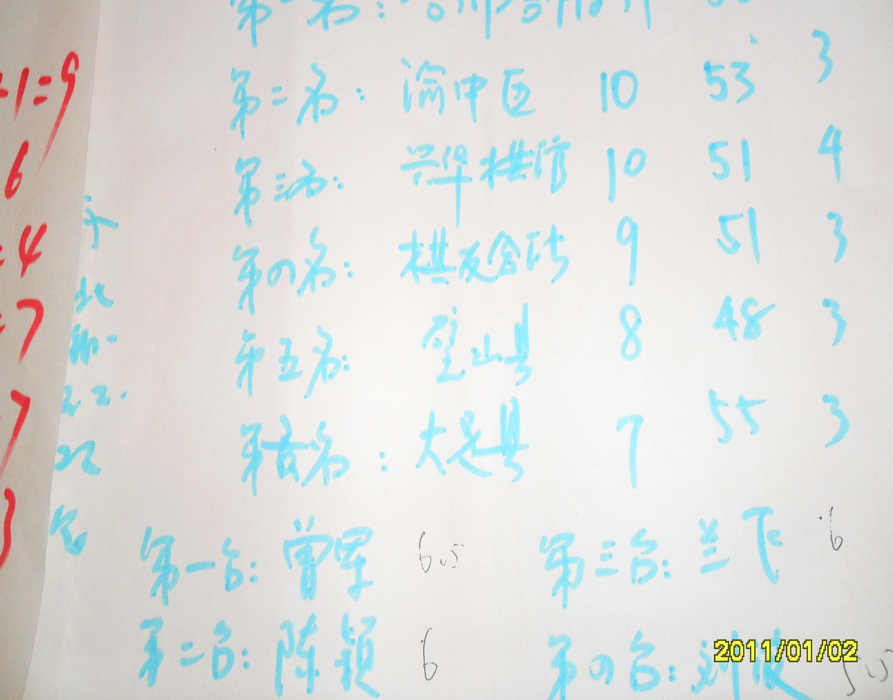 -1=9
6
=4
=7
7
3
第一名:
第二名: 渝中区 10 53 3
第三名: 兴华棋馆 10 51 4
第四名: 棋友会所 9 51 3
第五名: 璧山县 8 48 3
第六名: 大足县 7 55 3
第一台: 曾军 6.5 第三台: 兰飞 6
第二台: 陈颖 6 第四台: 刘波 5.5
2011/01/02